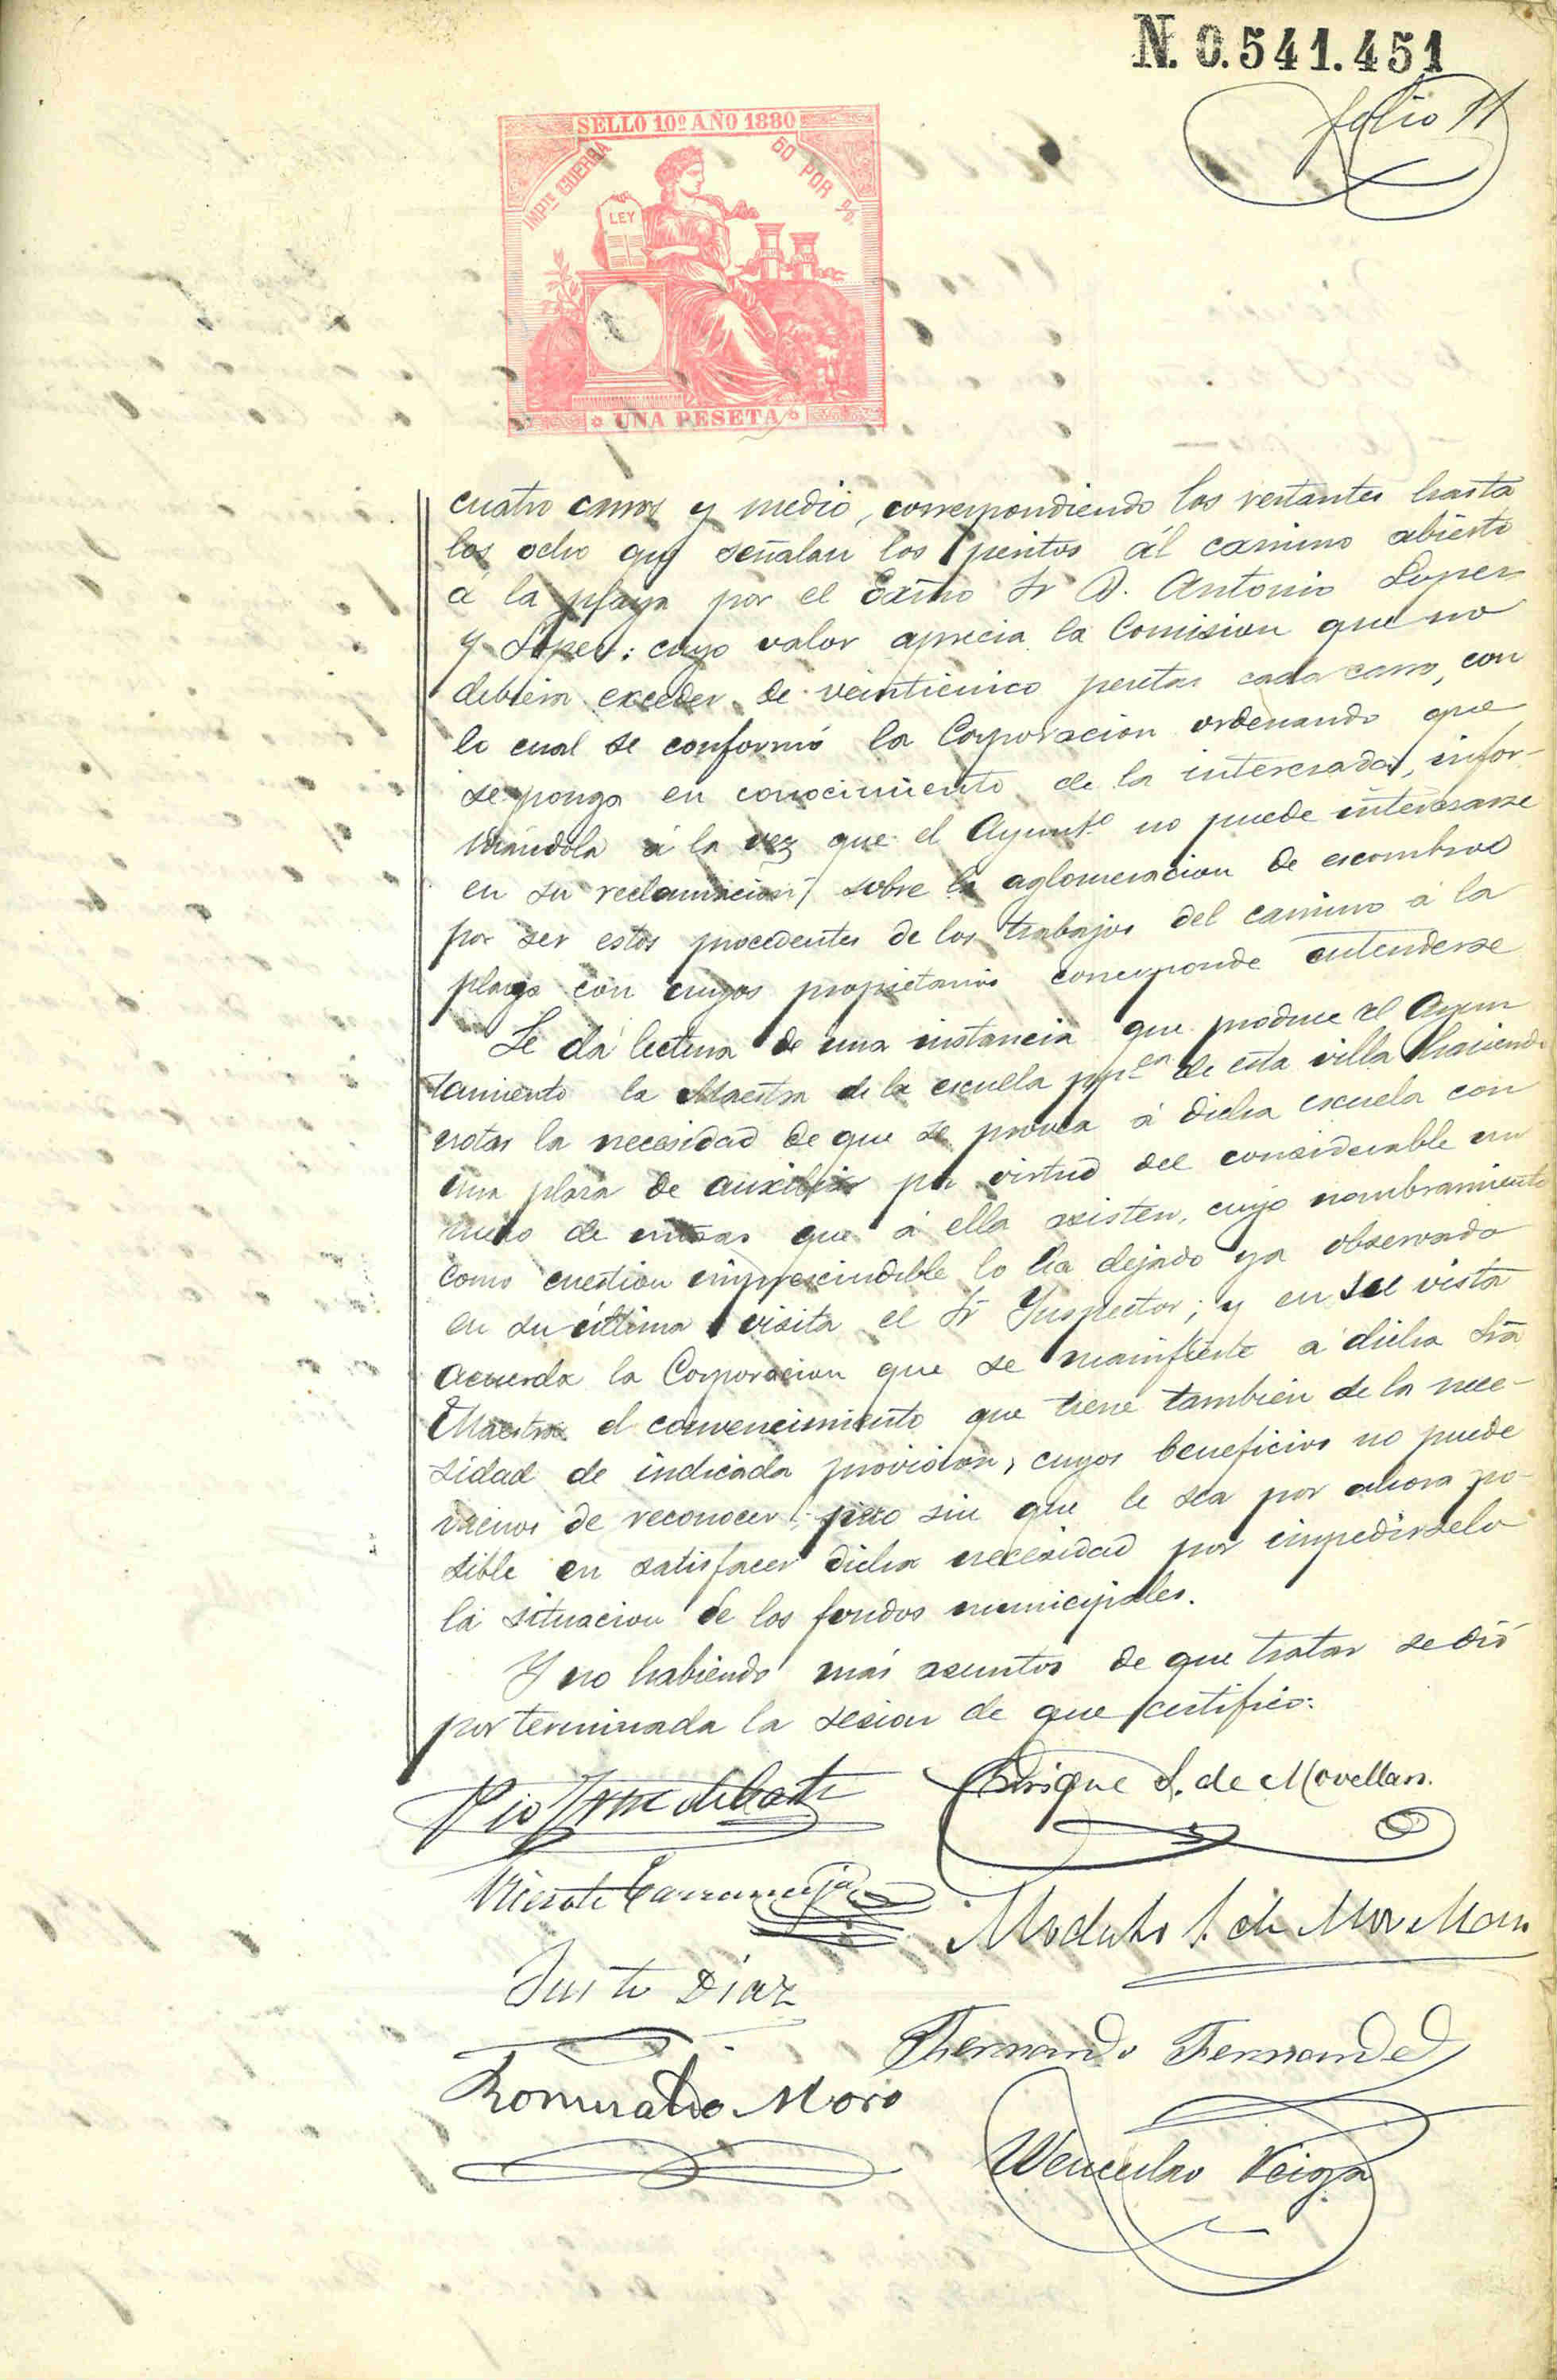 N. 0.541.451
folio 11
SELLO 10º AÑO 1880
IMPte GUERRA 50 POR %
LEY
UNA PESETA
cuatro carros y medio, correspondiendo los restantes hasta
los ocho que señalan los peritos al camino abierto
á la playa por el Exmo Sr D. Antonio Lopez
y Lopez: cuyo valor aprecia la Comision que no
debiera exceder de veinticinco pesetas cada carro, con
lo cual se conformó la Corporacion ordenando que
se ponga en conocimiento de la interesada, infor-
mándola á la vez que el Ayuntº no puede interesarse
en su reclamacion sobre la aglomeracion de escombros
por ser estos procedentes de los trabajos del camino á la
playa con cuyos propietarios corresponde entenderse
Se dá lectura de una instancia que produce al Ayun
tamiento la Maestra de la escuela de esta villa haciendo
notar la necesidad de que se provea á dicha escuela con
una plaza de auxiliar por virtud del considerable nu
mero de niñas que á ella asisten, cuyo nombramiento
como cuestion imprescindible lo ha dejado ya observado
en su última visita el Sr Inspector; y en su vista
acuerda la Corporacion que se manifieste á dicha Sra
Maestra el convencimiento que tiene tambien de la nece-
sidad de indicada provision, cuyos beneficios no puede
menos de reconocer; pero sin que le sea por ahora po-
sible en satisfacer dicha necesidad por impedirselo
la situacion de los fondos municipales.
Y no habiendo más asuntos de que tratar se dió
por terminada la sesion de que certifico.
Enrique S. de Movellan.
Vicente
Modesto S. de Movellan
Justo Diaz
Fernando Fernandez
Romualdo Moro
Wenceslao Veiga